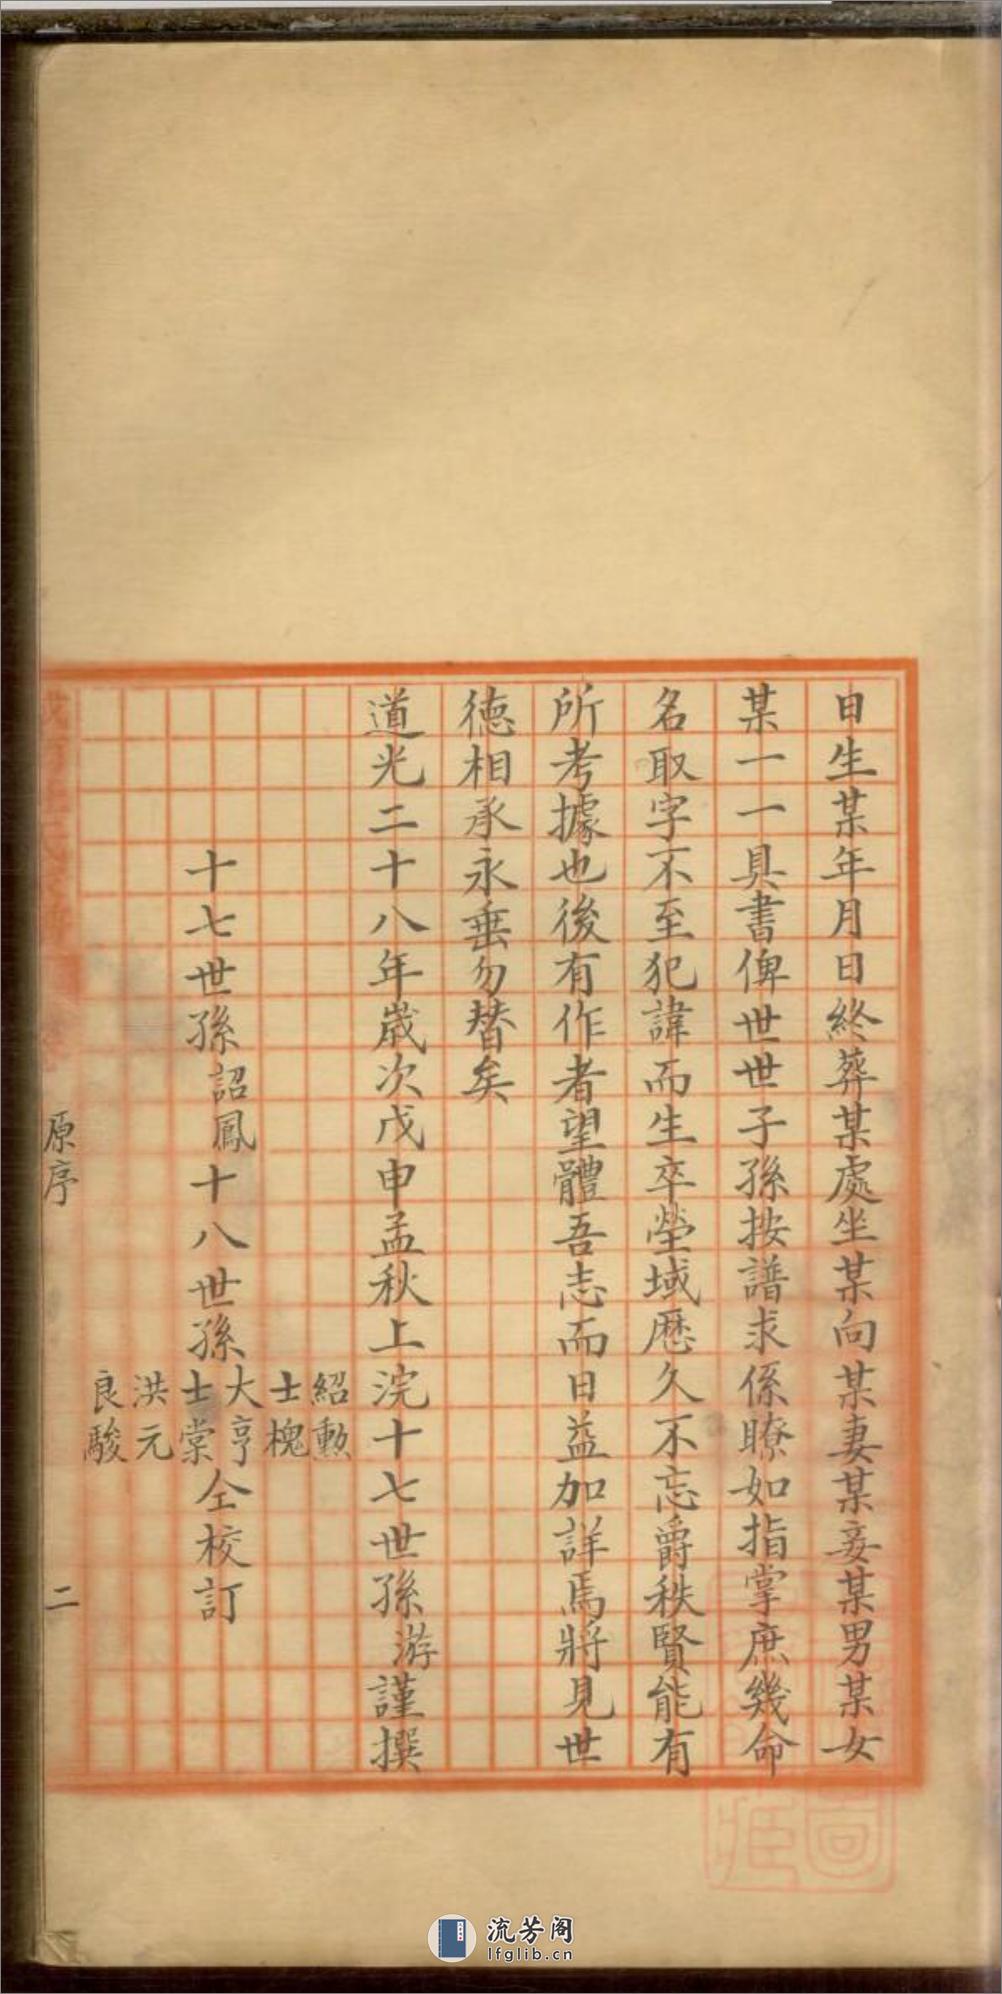 日生某年月日終葬某處坐某向某妻某妾某男某女
某一一具書俾世世子孫按譜求係瞭如指掌庶幾命
名取字不至犯諱而生卒塋域歷久不忘爵秩賢能有
所考據也後有作者望體吾志而日益加詳焉將見世
德相承永垂勿替矣
道光二十八年歲次戊申孟秋上浣十七世孫游謹撰
十七世孫詔鳳十八世孫
紹勳
士槐
大亨
士棠
洪元
良駿
仝校訂
原序
二
流芳阁
lfglib.cn